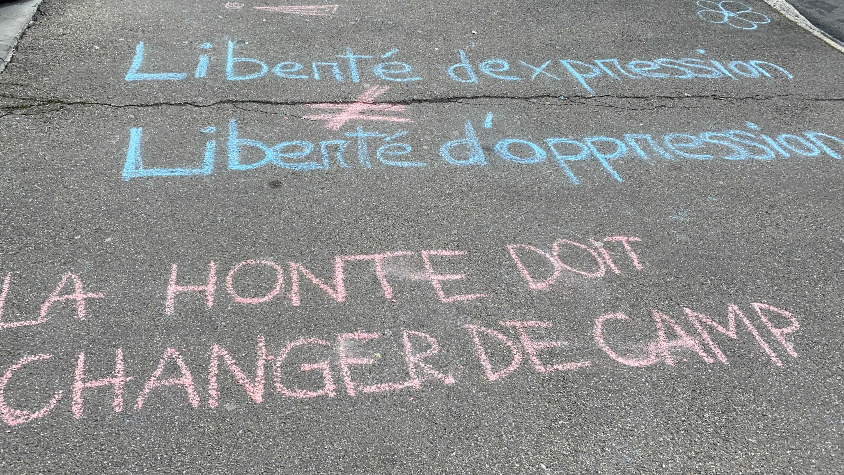 Liberté d'expression
≠
Liberté d'oppression
LA HONTE DOIT
CHANGER DE CAMP